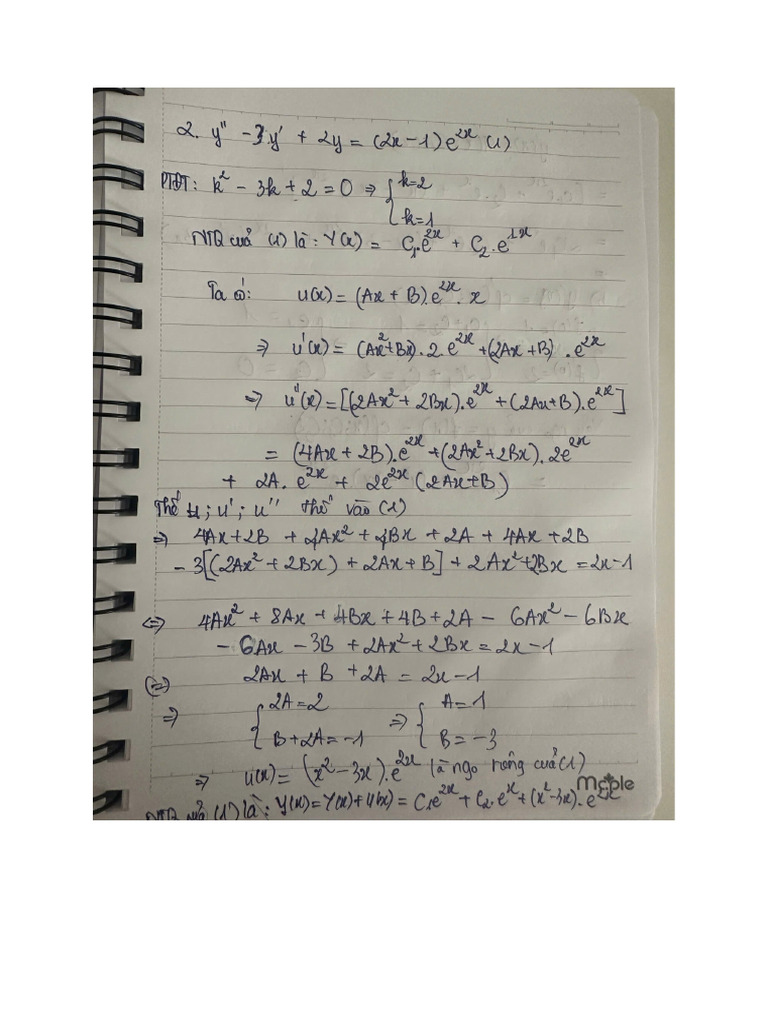 2. y'' - 3y' + 2y = (2x-1)e^{2x} (1)
PTĐT: k² - 3k + 2 = 0 ⇒ { k=2
k=1
NTQ cuả (1) là: Y(x) = C₁.e^{2x} + C₂.e^{1x}
Ta có: u(x) = (Ax + B).e^{2x}.x
⇒ u'(x) = (Ax²+Bx).2.e^{2x} + (2Ax+B).e^{2x}
⇒ u''(x) = [(2Ax² + 2Bx).e^{2x} + (2Ax+B).e^{2x}]
= (4Ax + 2B).e^{2x} + (2Ax² + 2Bx).2e^{2x}
+ 2A.e^{2x} + 2e^{2x}(2Ax+B)
Thế u; u'; u'' thế vào (1)
⇒ 4Ax+2B + 4Ax² + 4Bx + 2A + 4Ax + 2B
- 3[(2Ax² + 2Bx) + 2Ax + B] + 2Ax² + 2Bx = 2x-1
⇔ 4Ax² + 8Ax + 4Bx + 4B + 2A - 6Ax² - 6Bx
- 6Ax - 3B + 2Ax² + 2Bx = 2x-1
⇔ 2Ax + B + 2A = 2x-1
⇒ { 2A=2 ⇒ { A=1
B+2A=-1 B=-3
⇒ u(x) = (x² - 3x).e^{2x} là ngo riêng cuả (1)
Maple
NTQ cuả (1) là: Y(x) = Y(x) + U(x) = C₁e^{2x} + C₂.e^{x} + (x² - 3x).e^{2x}